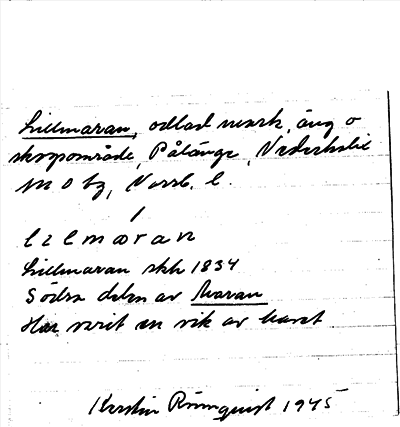 Lillmaran, odlad mark, äng o
skogsområde, Pålänge, Nederkalix
sn o tg, Norrb. l.
lilmaran
Lillmaran skh 1834
Södra delen av Maran
Har varit en vik av havet
Kerstin Rönnquist 1945